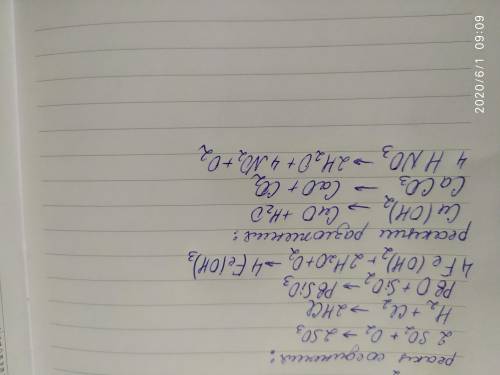 реакция соединения:
2SO₂ + O₂ → 2SO₃
H₂ + Cl₂ → 2HCl
PbO + SiO₂ → PbSiO₃
4Fe(OH)₂ + 2H₂O + O₂ → 4Fe(OH)₃
реакции разложения:
Cu(OH)₂ → CuO + H₂O
CaCO₃ → CaO + CO₂
4HNO₃ → 2H₂O + 4NO₂ + O₂
2020/6/1 09:09